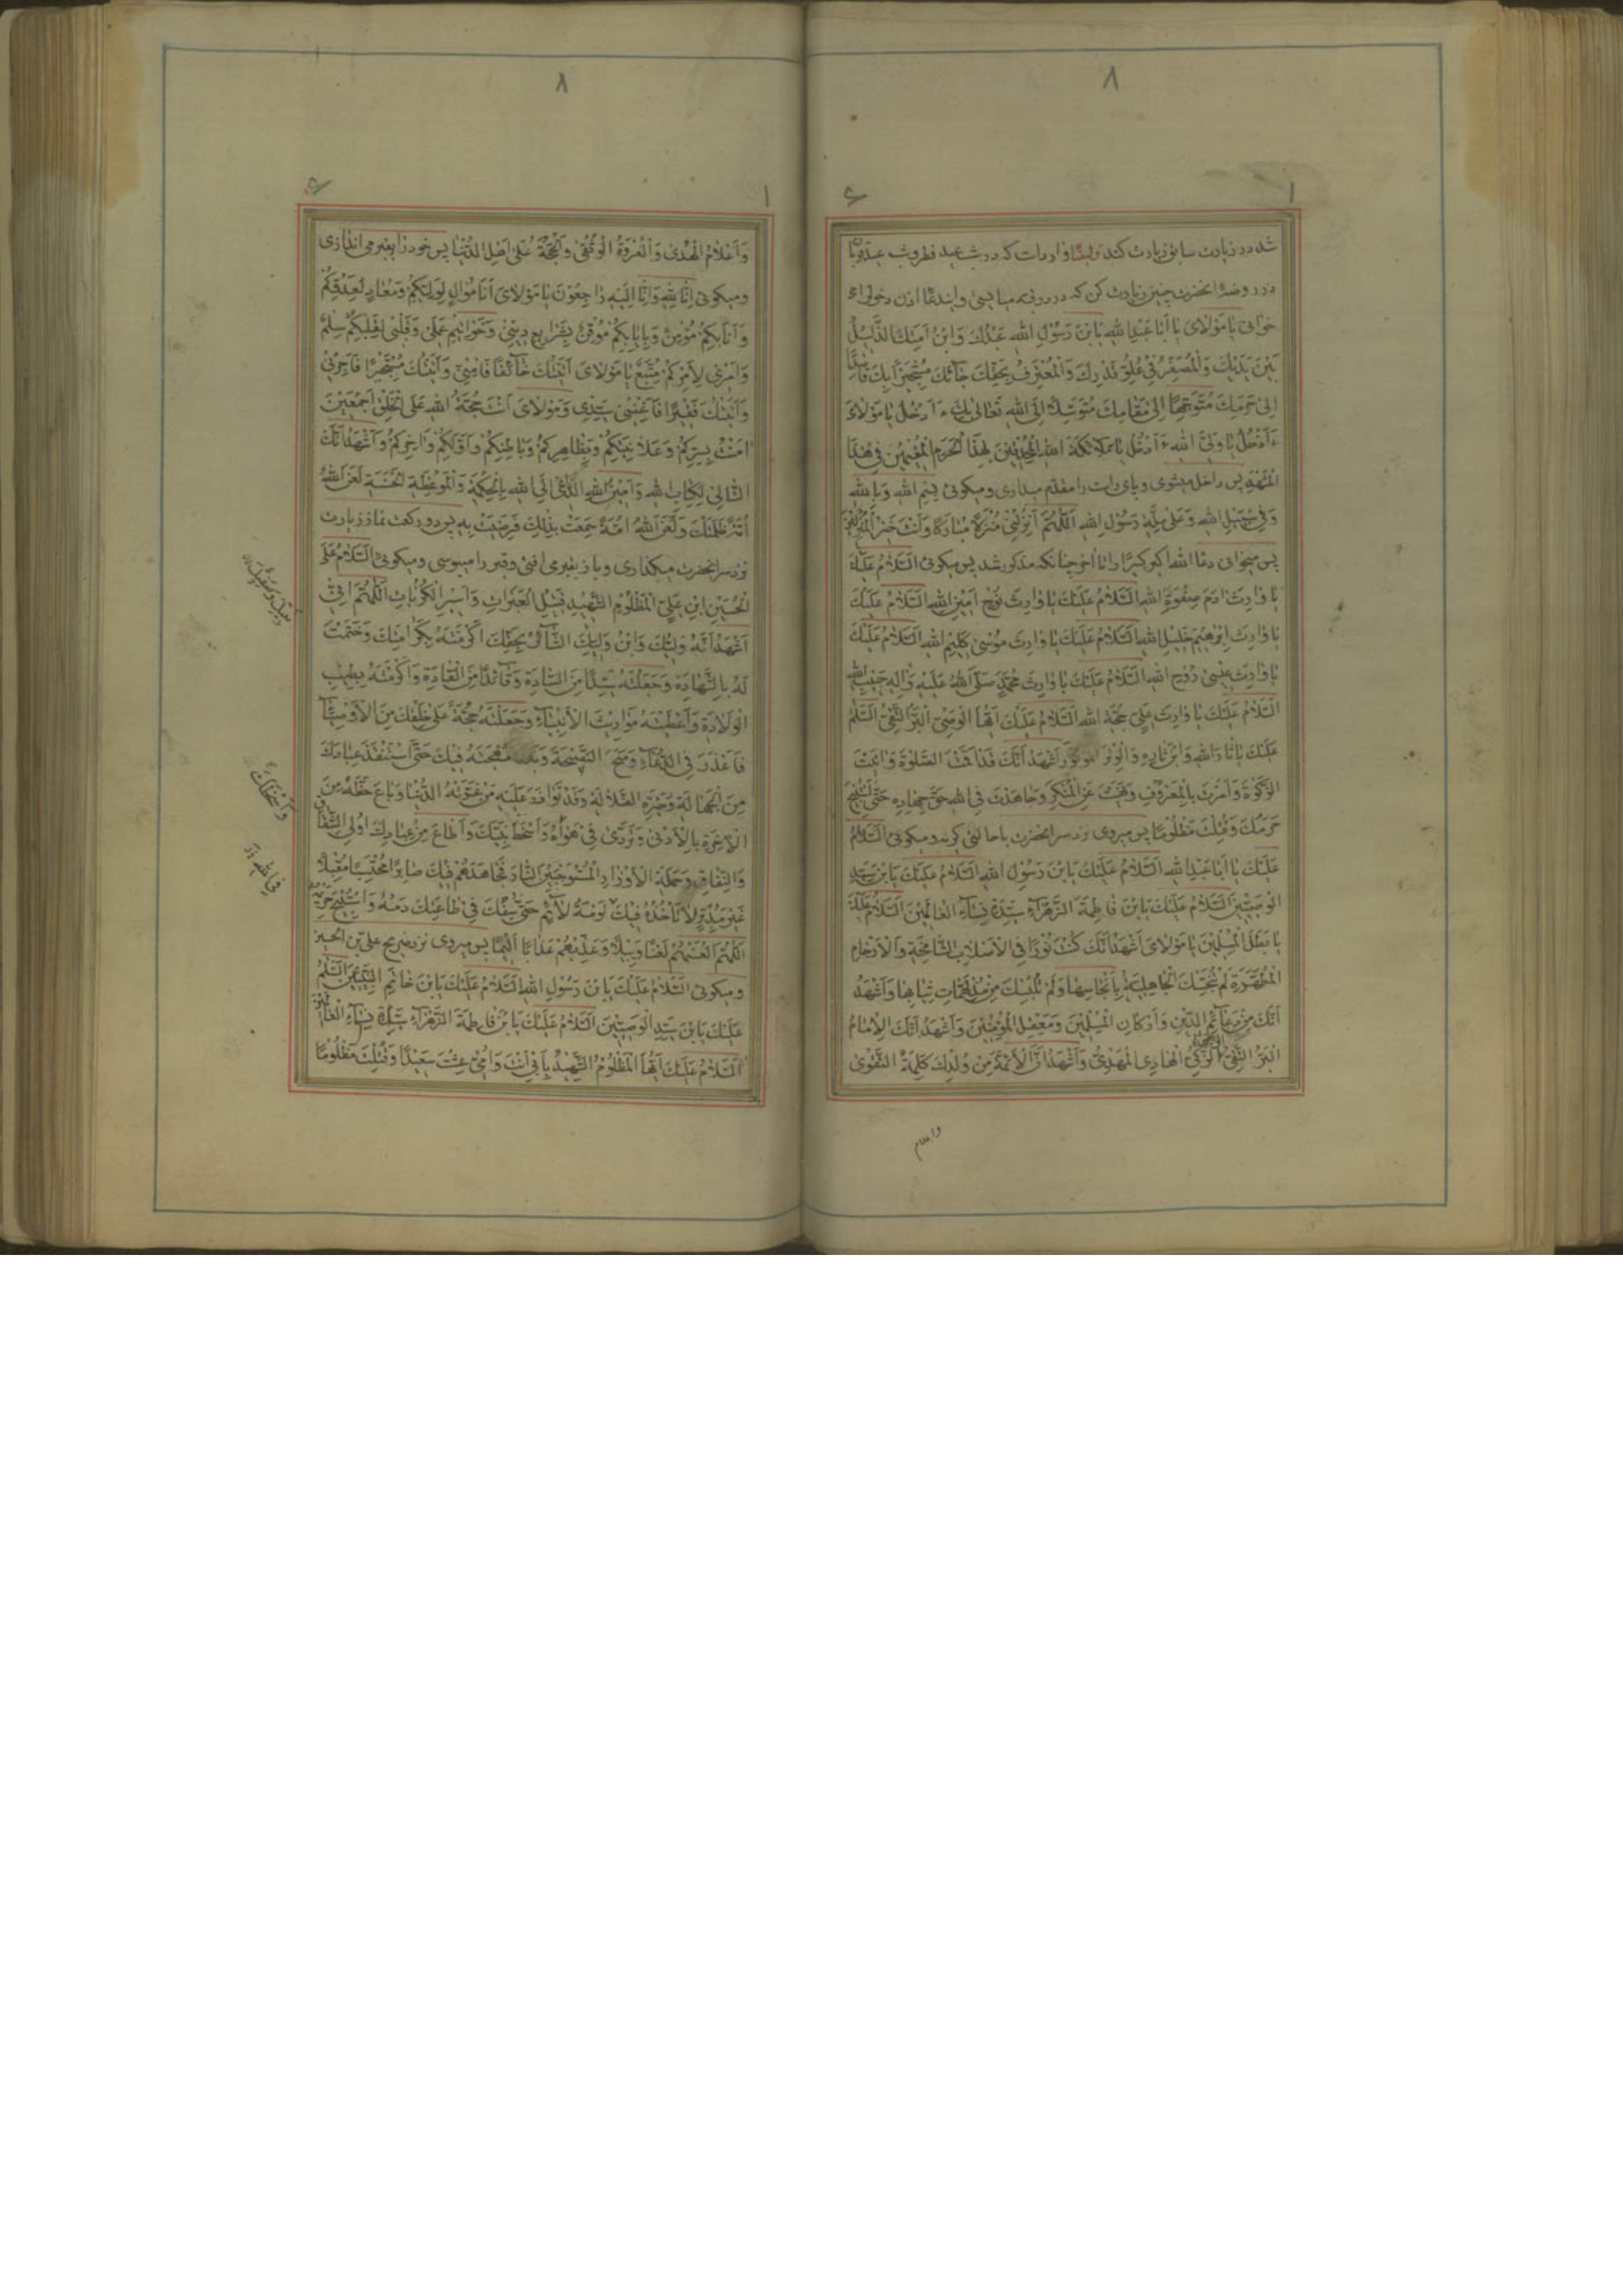 ٨
شد در زیارت سابق زیارت کند وایضا وارد است که در شب عید فطر و شب عید قربان
در روضهٔ آنحضرت چنین زیارت کن که در در قبه میایستی و این دعا اذن دخول را
خوانی یا مَوْلایَ یا اَبا عَبْدِاللهِ یَابْنَ رَسُولِ اللهِ عَبْدُكَ وَابْنُ اَمَتِكَ الذَّلیلُ
بَیْنَ یَدَیْكَ وَالْمُصَغِّرُ فی عُلُوِّ قَدْرِكَ وَالْمُعْتَرِفُ بِحَقِّكَ جآئَكَ مُسْتَجیرًا بِكَ قاصِدًا
اِلی حَرَمِكَ مُتَوَجِّهًا اِلی مَقامِكَ مُتَوَسِّلًا اِلَی اللهِ تَعالی بِكَ ءَاَدْخُلُ یا مَوْلایَ
ءَاَدْخُلُ یا وَلِیَّ اللهِ ءَاَدْخُلُ یا مَلائِکَةَ اللهِ الْمُحْدِقینَ بِهذَا الْحَرَمِ الْمُقیمینَ فی هذَا
الْمَشْهَدِ پس داخل میشوی و پای راست را مقدم میداری و میگوئی بِسْمِ اللهِ وَبِاللهِ
وَفی سَبیلِ اللهِ وَعَلی مِلَّةِ رَسُولِ اللهِ اَللّهُمَّ اَنْزِلْنی مُنْزَلًا مُبارَکًا وَاَنْتَ خَیْرُ الْمُنْزِلینَ
پس میخوانی دعا الله اکبر کبیرًا را تا آخر چنانکه مذکور شد پس میگوئی اَلسَّلامُ عَلَیْكَ
یا وارِثَ ادَمَ صِفْوَةِ اللهِ اَلسَّلامُ عَلَیْكَ یا وارِثَ نُوحٍ اَمینِ اللهِ اَلسَّلامُ عَلَیْكَ
یا وارِثَ اِبْرهیمَ خَلیلِ اللهِ اَلسَّلامُ عَلَیْكَ یا وارِثَ مُوسی کَلیمِ اللهِ اَلسَّلامُ عَلَیْكَ
یا وارِثَ عیسی رُوحِ اللهِ اَلسَّلامُ عَلَیْكَ یا وارِثَ مُحَمَّدٍ صَلَّی اللهُ عَلَیْهِ وَالِهِ حَبیبِ اللهِ
اَلسَّلامُ عَلَیْكَ یا وارِثَ عَلِیٍّ حُجَّةِ اللهِ اَلسَّلامُ عَلَیْكَ اَیُّهَا الْوَصِیُّ الْبَرُّ التَّقِیُّ اَلسَّلامُ
عَلَیْكَ یا ثارَ اللهِ وَابْنَ ثارِهِ وَالْوِتْرَ الْمَوْتُورَ اَشْهَدُ اَنَّكَ قَدْ اَقَمْتَ الصَّلوةَ وَاتَیْتَ
الزَّکوةَ وَاَمَرْتَ بِالْمَعْرُوفِ وَنَهَیْتَ عَنِ الْمُنْکَرِ وَجاهَدْتَ فِی اللهِ حَقَّ جِهادِهِ حَتَّی اسْتُبیحَ
حَرَمُكَ وَقُتِلْتَ مَظْلُومًا پس میروی نزد سر آنحضرت با حالتی گریه و میگوئی اَلسَّلامُ
عَلَیْكَ یا اَبا عَبْدِاللهِ اَلسَّلامُ عَلَیْكَ یَابْنَ رَسُولِ اللهِ اَلسَّلامُ عَلَیْكَ یَابْنَ سَیِّدِ
الْوَصِیّینَ اَلسَّلامُ عَلَیْكَ یَابْنَ فاطِمَةَ الزَّهْرآءِ سَیِّدَةِ نِسآءِ الْعالَمینَ اَلسَّلامُ عَلَیْكَ
یا بَطَلَ الْمُسْلِمینَ یا مَوْلایَ اَشْهَدُ اَنَّكَ کُنْتَ نُورًا فِی الْاَصْلابِ الشّامِخَةِ وَالْاَرْحامِ
الْمُطَهَّرَةِ لَمْ تُنَجِّسْكَ الْجاهِلِیَّةُ بِاَنْجاسِها وَلَمْ تُلْبِسْكَ مِنْ مُدْلَهِمّاتِ ثِیابِها وَاَشْهَدُ
اَنَّكَ مِنْ دَعآئِمِ الدّینِ وَاَرْکانِ الْمُسْلِمینَ وَمَعْقِلِ الْمُؤْمِنینَ وَاَشْهَدُ اَنَّكَ الْاِمامُ
الْبَرُّ التَّقِیُّ الزَّکِیُّ الْهادِی الْمَهْدِیُّ وَاَشْهَدُ اَنَّ الْاَئِمَّةَ مِنْ وُلْدِكَ کَلِمَةُ التَّقْوی
واعلام
٨
وَاَعْلامُ الْهُدی وَالْعُرْوَةُ الْوُثْقی وَالْحُجَّةُ عَلی اَهْلِ الدُّنْیا پس خود را بقبر می اندازی
ومیگوئی اِنّا لِلّهِ وَاِنّا اِلَیْهِ راجِعُونَ یا مَوْلایَ اَنَا مُوالٍ لِوَلِیِّکُمْ وَمُعادٍ لِعَدُوِّکُمْ
وَاَنَا بِکُمْ مُؤْمِنٌ وَبِاِیابِکُمْ مُوقِنٌ بِشَرایِعِ دینی وَخَواتیمِ عَمَلی وَقَلْبی لِقَلْبِکُمْ سِلْمٌ
وَاَمْری لِاَمْرِکُمْ مُتَّبِعٌ یا مَوْلایَ اَتَیْتُكَ خآئِفًا فَامِنّی وَاَتَیْتُكَ مُسْتَجیرًا فَاَجِرْنی
وَاَتَیْتُكَ فَقیرًا فَاَغْنِنی سَیِّدی وَمَوْلایَ اَنْتَ حُجَّةُ اللهِ عَلَی الْخَلْقِ اَجْمَعینَ
امَنْتُ بِسِرِّکُمْ وَعَلانِیَتِکُمْ وَبِظاهِرِکُمْ وَباطِنِکُمْ وَاَوَّلِکُمْ وَاخِرِکُمْ وَاَشْهَدُ اَنَّكَ
التّالی لِکِتابِ اللهِ وَاَمینُ اللهِ الدّاعی اِلَی اللهِ بِالْحِکْمَةِ وَالْمَوْعِظَةِ الْحَسَنَةِ لَعَنَ اللهُ
اُمَّةً ظَلَمَتْكَ وَلَعَنَ اللهُ اُمَّةً سَمِعَتْ بِذلِكَ فَرَضِیَتْ بِهِ پس دو رکعت نماز زیارت
نزد سر آنحضرت میگذاری و باز بقبر می افتی و قبر را میبوسی و میگوئی اَلسَّلامُ عَلَی
الْحُسَیْنِ ابْنِ عَلِیٍّ الْمَظْلُومِ الشَّهیدِ قَتیلِ الْعَبَراتِ وَاَسیرِ الْکُرُباتِ اَللّهُمَّ اِنّی
اَشْهَدُ اَنَّهُ وَلِیُّكَ وَابْنُ وَلِیِّكَ الثّآئِرُ بِحَقِّكَ اَکْرَمْتَهُ بِکَرامَتِكَ وَخَتَمْتَ
لَهُ بِالشَّهادَةِ وَجَعَلْتَهُ سَیِّدًا مِنَ السّادَةِ وَقآئِدًا مِنَ الْقادَةِ وَاَکْرَمْتَهُ بِطیبِ
الْوِلادَةِ وَاَعْطَیْتَهُ مَواریثَ الْاَنْبِیآءِ وَجَعَلْتَهُ حُجَّةً عَلی خَلْقِكَ مِنَ الْاَوْصِیآءِ
فَاَعْذَرَ فِی الدُّعآءِ وَمَنَحَ النَّصیحَةَ وَبَذَلَ مُهْجَتَهُ فیكَ حَتَّی اسْتَنْقَذَ عِبادَكَ
مِنَ الْجَهالَةِ وَحَیْرَةِ الضَّلالَةِ وَقَدْ تَوازَرَ عَلَیْهِ مَنْ غَرَّتْهُ الدُّنْیا وَباعَ حَظَّهُ مِنَ
الْاخِرَةِ بِالْاَدْنی وَتَرَدّی فی هَواهُ وَاَسْخَطَ نَبِیَّكَ وَاَطاعَ مِنْ عِبادِكَ اُولِی الشِّقاقِ
وَالنِّفاقِ وَحَمَلَةَ الْاَوْزارِ الْمُسْتَوْجِبینَ النّارَ فَجاهَدَهُمْ فیكَ صابِرًا مُحْتَسِبًا مُقْبِلًا
غَیْرَ مُدْبِرٍ لا تَأْخُذُهُ فیكَ لَوْمَةُ لآئِمٍ حَتّی سُفِكَ فی طاعَتِكَ دَمُهُ وَاسْتُبیحَ حَریمُهُ
اَللّهُمَّ الْعَنْهُمْ لَعْنًا وَبیلًا وَعَذِّبْهُمْ عَذابًا اَلیمًا پس میروی نزد ضریح علی بن الحسین
و میگوئی اَلسَّلامُ عَلَیْكَ یَابْنَ رَسُولِ اللهِ اَلسَّلامُ عَلَیْكَ یَابْنَ خاتَمِ النَّبِیّینَ اَلسَّلامُ
عَلَیْكَ یَابْنَ سَیِّدِ الْوَصِیّینَ اَلسَّلامُ عَلَیْكَ یَابْنَ فاطِمَةَ الزَّهْرآءِ سَیِّدَةِ نِسآءِ الْعالَمینَ
اَلسَّلامُ عَلَیْكَ اَیُّهَا الْمَظْلُومُ الشَّهیدُ بِاَبی اَنْتَ وَاُمّی عِشْتَ سَعیدًا وَقُتِلْتَ مَظْلُومًا